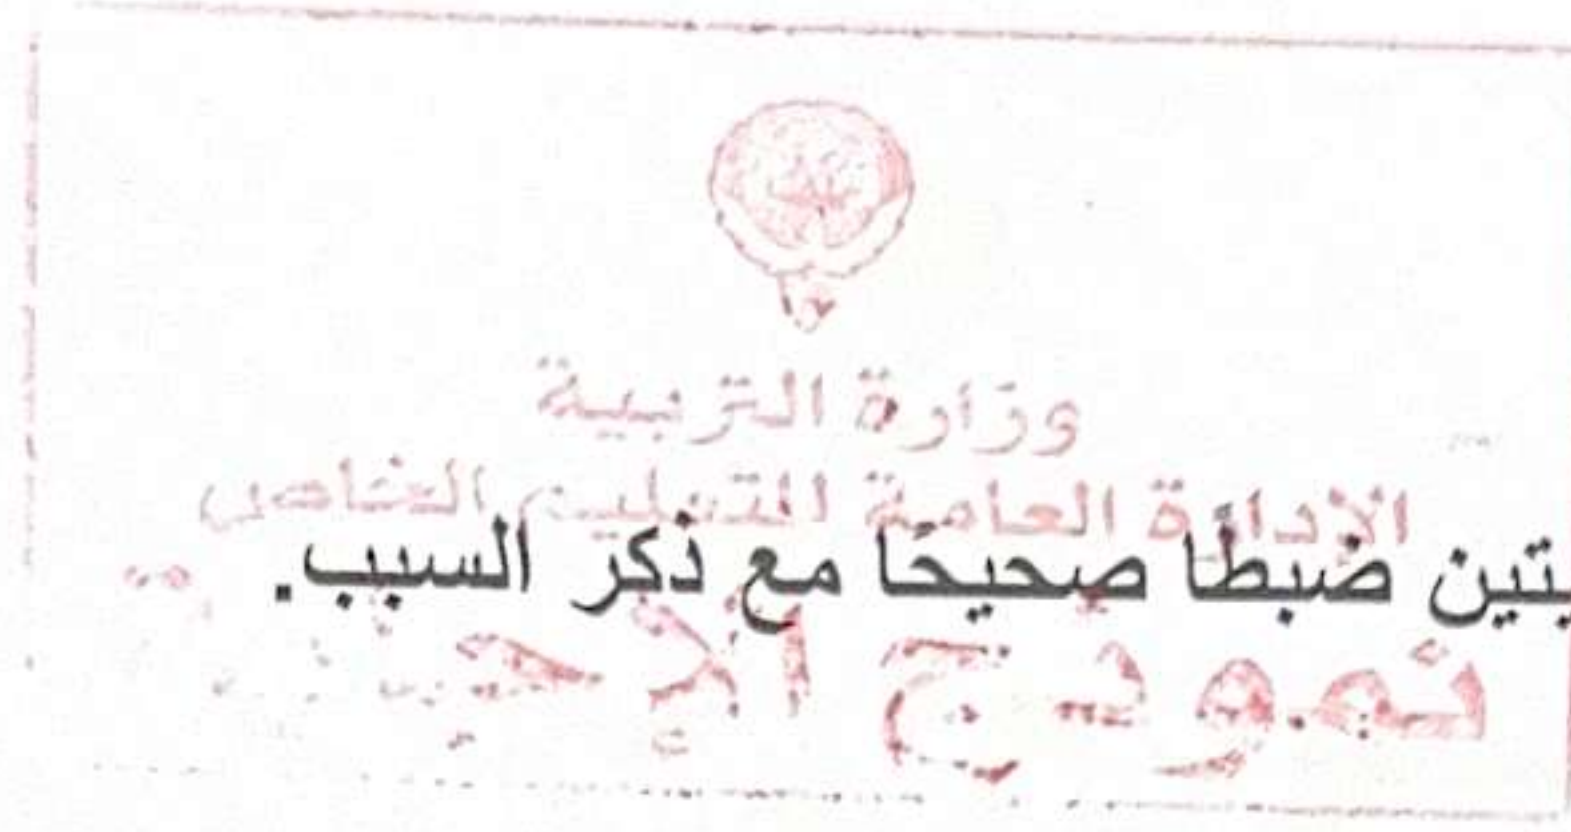 وزارة التربية
الإدارة العامة للتعليم الخاص
ـتين ضبطًا صحيحًا مع ذكر السبب.
نموذج الإجـ